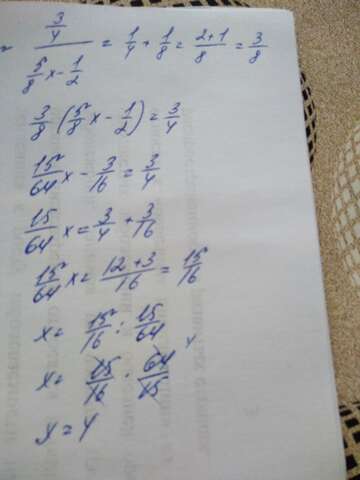 (3/4)/(5/8 x - 1/2) = 1/4 + 1/8 = (2+1)/8 = 3/8
3/8 (5/8 x - 1/2) = 3/4
15/64 x - 3/16 = 3/4
15/64 x = 3/4 + 3/16
15/64 x = (12+3)/16 = 15/16
x = 15/16 : 15/64
x = 15/16 · 64/15
x = 4